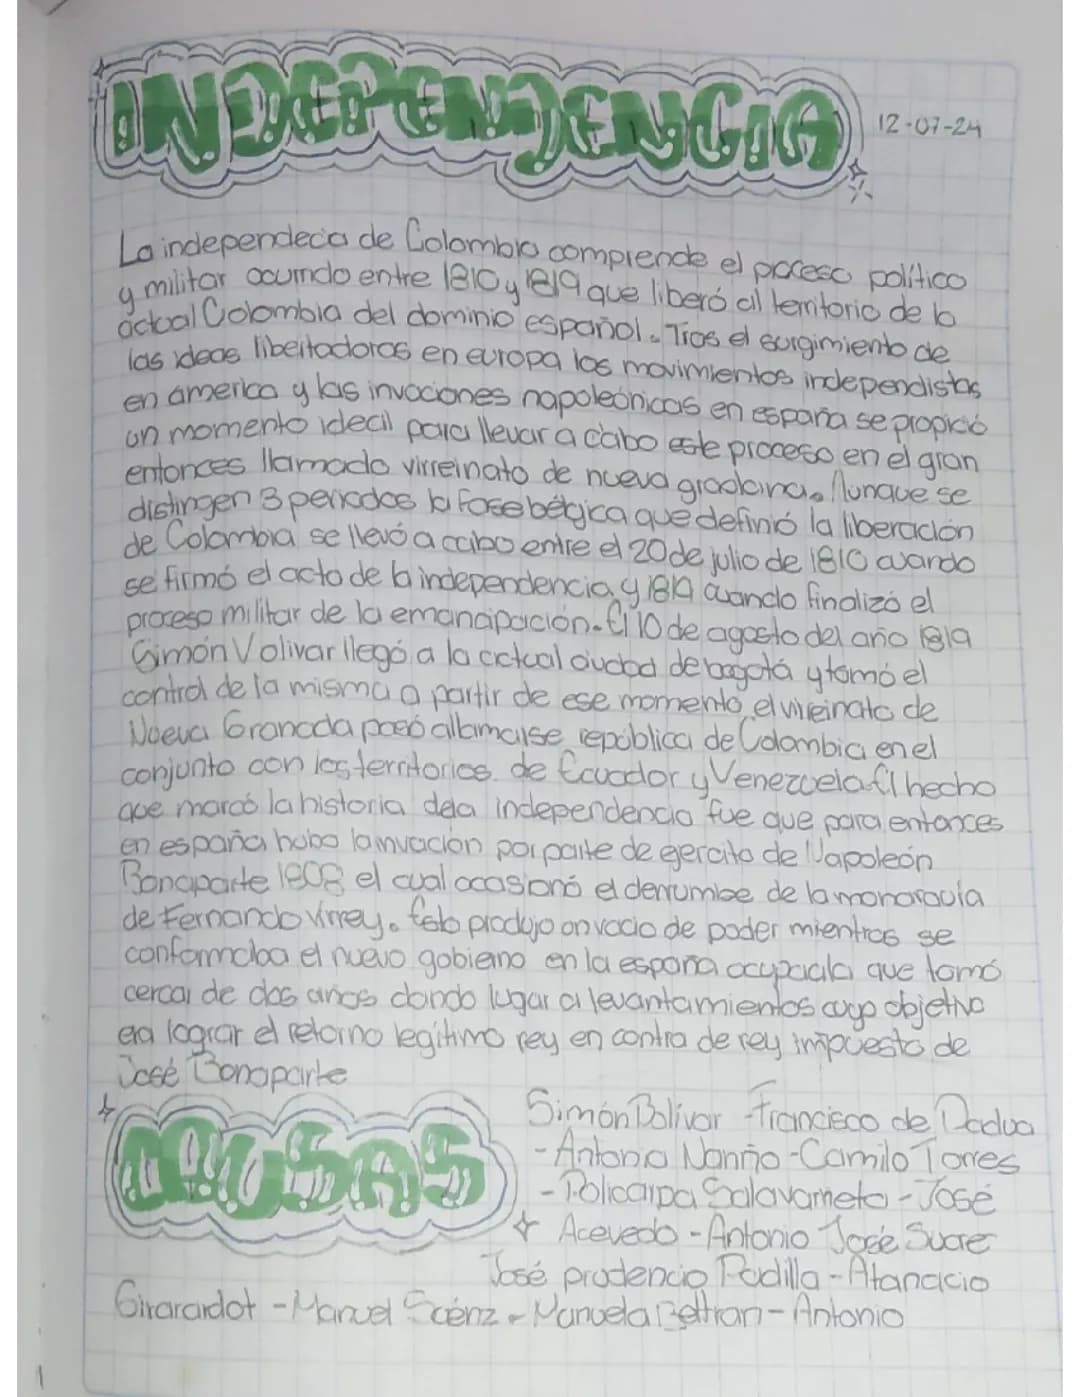 INDEPENDENCIA
12-07-24
La independecia de Colombia comprende el proceso político
y militar ocurrido entre 1810 y 1819 que liberó al territorio de la
actual Colombia del dominio español. Tras el surgimiento de
las ideas libertadoras en europa los movimientos independistas
en america y las invaciones napoleónicas en españa se propició
un momento ideal para llevar a cabo este proceso en el gran
entonces llamado virreinato de nueva . Aunque se
distingen 3 periodos la fase bélgica que definió la liberación
de Colombia se llevó a cabo entre el 20 de julio de 1810 cuando
se firmó el acto de la independencia y 1819 cuando finalizó el
proceso militar de la emanapación. El 10 de agosto del año 1819
Simón Volivar llegó a la actual ciudad de bogotá y tomó el
control de la misma a partir de ese momento, el vireinato de
Nueva Granada pasó a llamarse república de Colombia en el
conjunto con los territorios de Ecuador y Venezuela. El hecho
que marcó la historia dela independencia fue que para entonces
en españa hubo la invación por parte de ejercito de Napoleón
Bonaparte 1808 el cual ocasionó el derrumbe de la monarquía
de Fernando virrey. Esto produjo un vacio de poder mientras se
conformaba el nuevo gobierno en la españa ocupada que tomó
cerca de dos años dando lugar a levantamientos cuyo objetivo
era lograr el retorno legítimo rey en contra de rey impuesto de
José Bonaparte
CAUSAS
Simón Bolívar - Francisco de Padua
- Antonio Nariño - Camilo Torres
- Policarpa Salavarrieta - José
Acevedo - Antonio José Sucre
José prudencio Padilla - Atanacio
Girarardot - Manuel Saénz - Manuela Beltran - Antonio